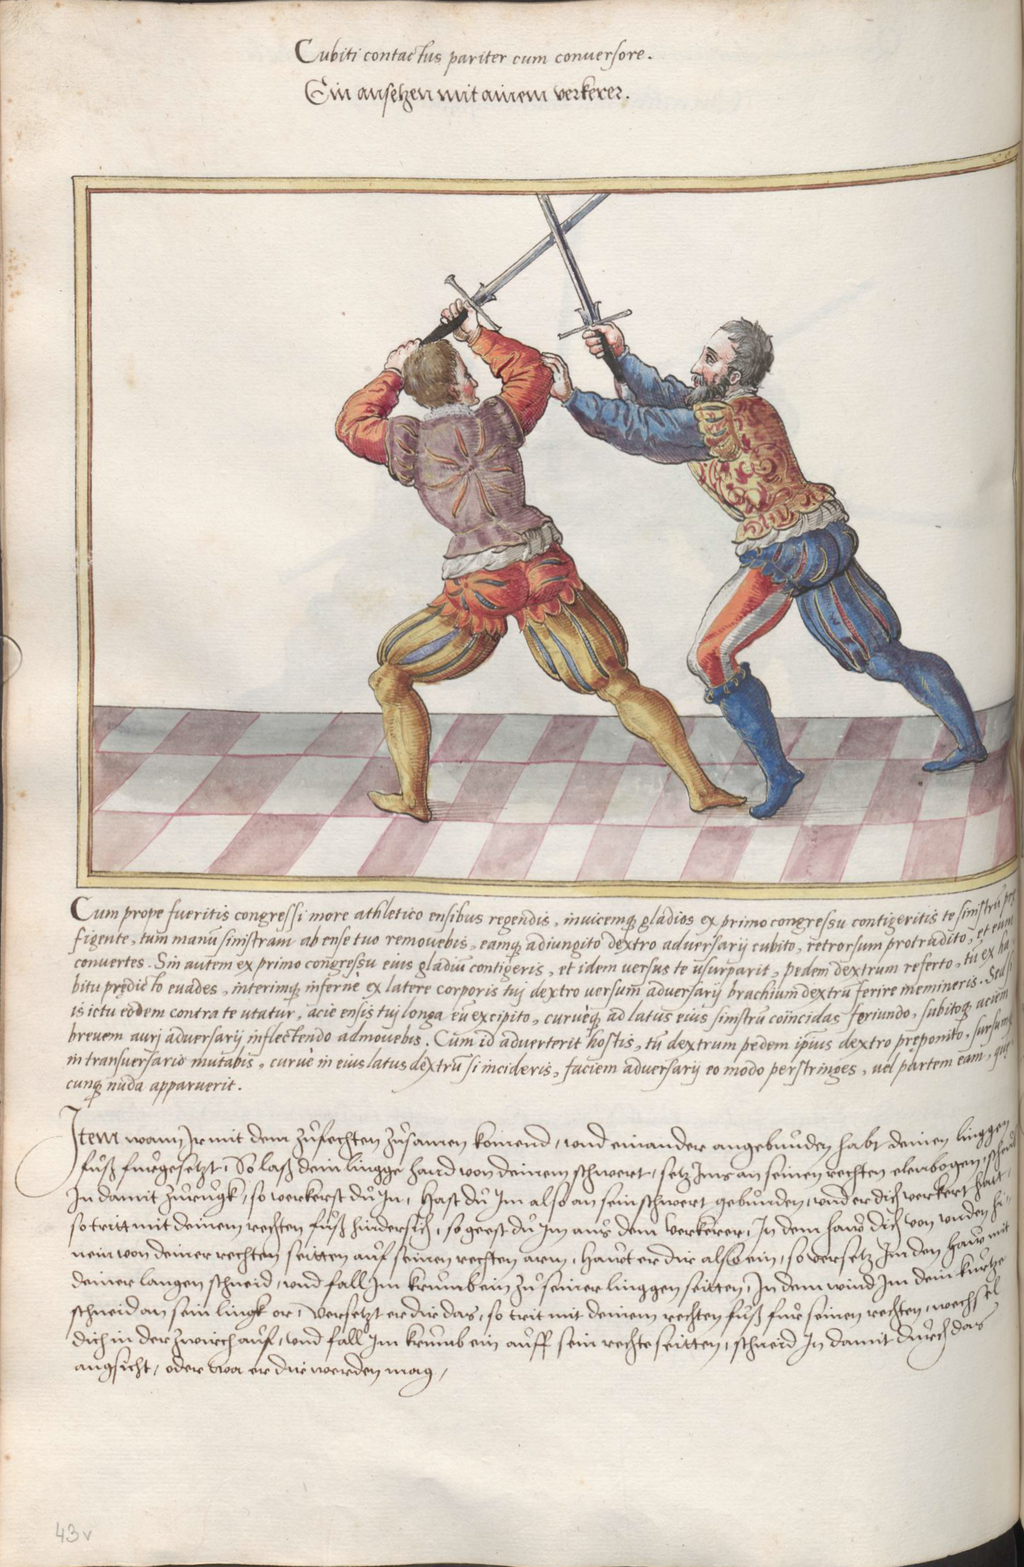 Cubiti contactus pariter cum conuersore.
Ein ansetzen mit ainem verkerer.
Cum prope fueritis congressi more athletico ensibus regendis, inuicemq; gladios ex primo congressu contigeritis te sinistrum
figente, tum manū sinistram ab ense tuo remouebis, eamq; adiungito dextro aduersarij cubito, retrorsum protrudito, et eum
conuertes. Sin autem ex primo congressu eius gladiū contigeris, et idem versus te usurparit, pedem dextrum referto, tu ex ha
bitu prędicto euades, interimq; inferne ex latere corporis tuj dextro versum aduersarij brachium dextrū ferire memineris. Sed si
is ictu eodem contra te utatur, acie ensis tuj longa eū excipito, curueq; ad latus eius sinistrū coincidas feriundo, subitoq; aciem
breuem aurj aduersarij inflectendo admouebis. Cum id aduerterit hostis, tū dextrum pedem ipsius dextro preponito, sursum
in transuersario mutabis, curue in eius latus dextrū si incideris, faciem aduersarij eo modo perstringes, uel partem eam, quę
cunq; nuda apparuerit.
Item wann Ir mit dem zůfechten zůsamen komend, vnd einander angebunden habt deinen linggen
fůß fürgesetzt, So laß dein lingge hand von deinem schwert, setz Ims an seinen rechten elenbogen, scheub
In damit zurugk, so verkerst du In, Hast du Im also an sein schwert gebunden, vnd er dich verkert hatt,
so tritt mit deinem rechten fůß hindersich, so geest du Im aus dem verkerer, In dem haw dich von vnden hi
nein von deiner rechten seitten auf seinen rechten arm, Hawt er dir also ein, so versetz Im den haw mit
deiner langen schneid, vnd fall Im krumb ein zů seiner linggen seitten, In dem wind Im dein kurtze
schneid an sein lingk or, Versetzt er dir das, so trit mit deinem rechten fůß für seinen rechten, wechsel
dich in der zwirch auf, vnd fall Im krumb ein auff sein rechte seitten, schneid In damit durch das
angsicht, oder wa er dir werden mag,
43v